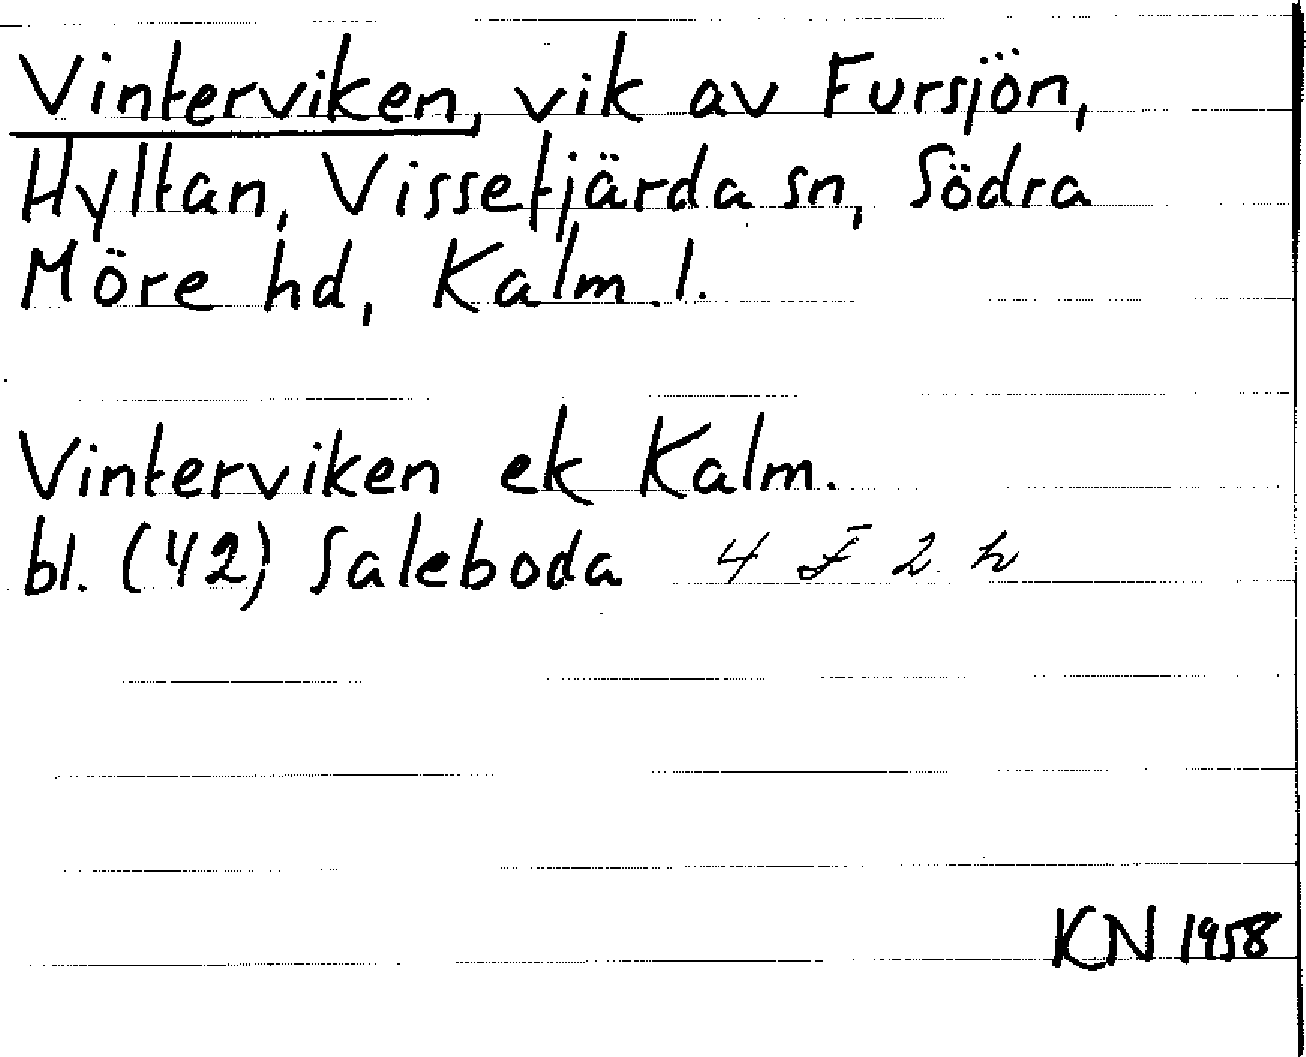 Vinterviken, vik av Fursjön,
Hyltan, Vissefjärda sn, Södra
Möre hd, Kalm. l.
Vinterviken ek Kalm.
bl. (42) Saleboda 4 F 2 h
KN 1958